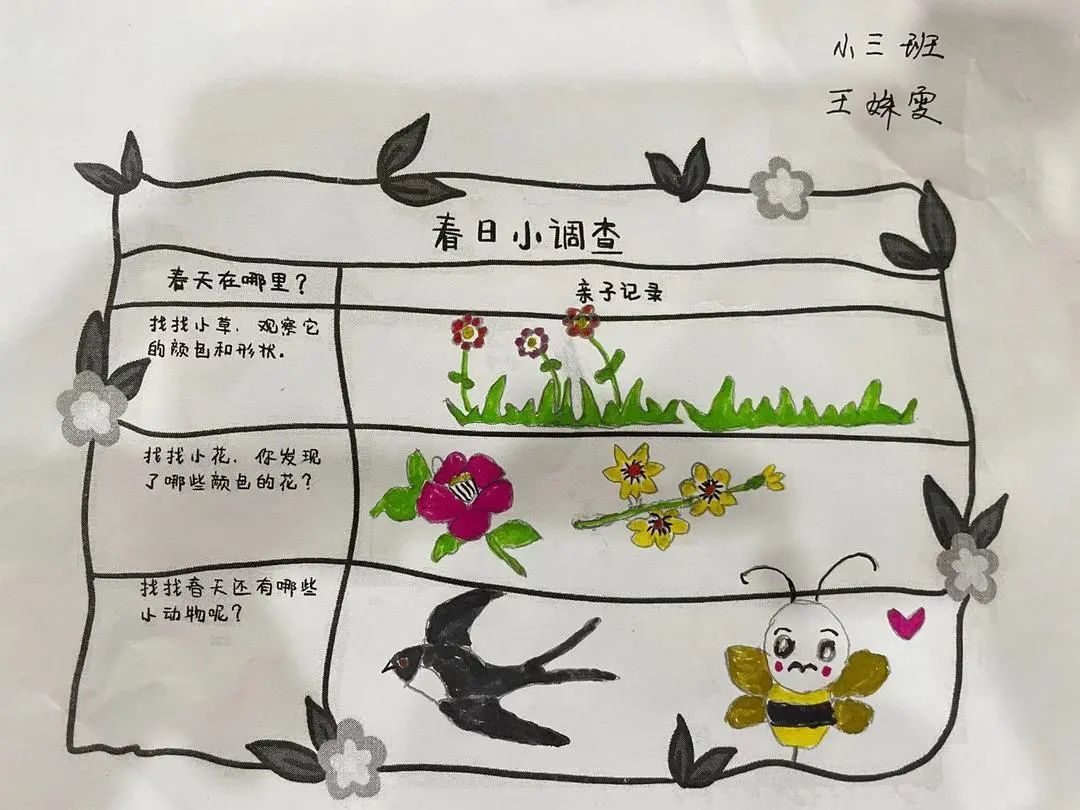 小三班
王姝雯
春日小调查
春天在哪里？
亲子记录
找找小草，观察它
的颜色和形状。
找找小花，你发现
了哪些颜色的花？
找找春天还有哪些
小动物呢？